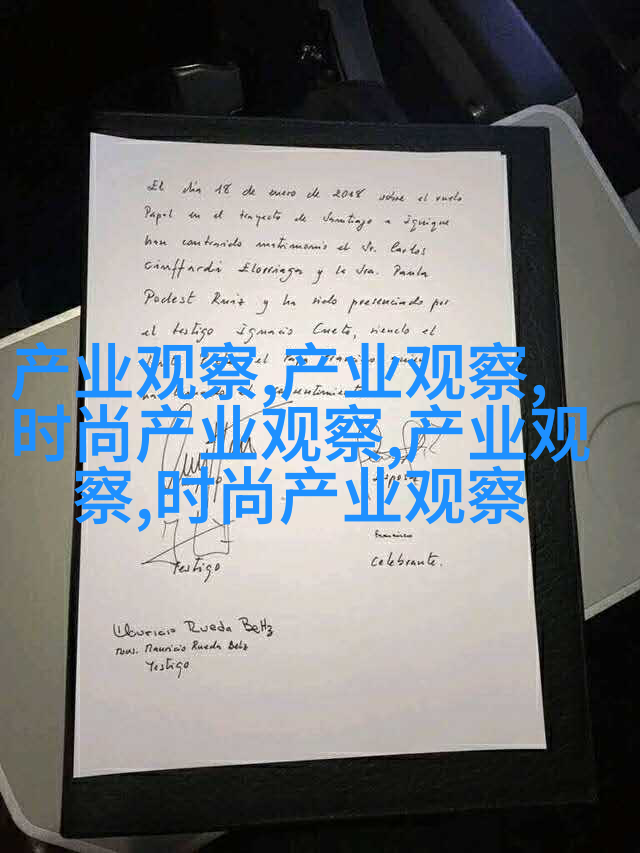 El día 18 de enero de 2018 sobre el vuelo
Papal en el trayecto de Santiago a Iquique
han contraido matrimonio el Sr. Carlos
Ciuffardi Elorriaga y la Sra. Paula
Podest Ruiz y ha sido presenciado por
el testigo Ignacio Cueto, siendo el
el Papa Francisco quien
产业观察,产业观察,
时尚产业观察,产业观
察,时尚产业观察
esposa
Testigo
Franciscus
Celebrante.
Mauricio Rueda Beltz
Mons. Mauricio Rueda Beltz
Testigo